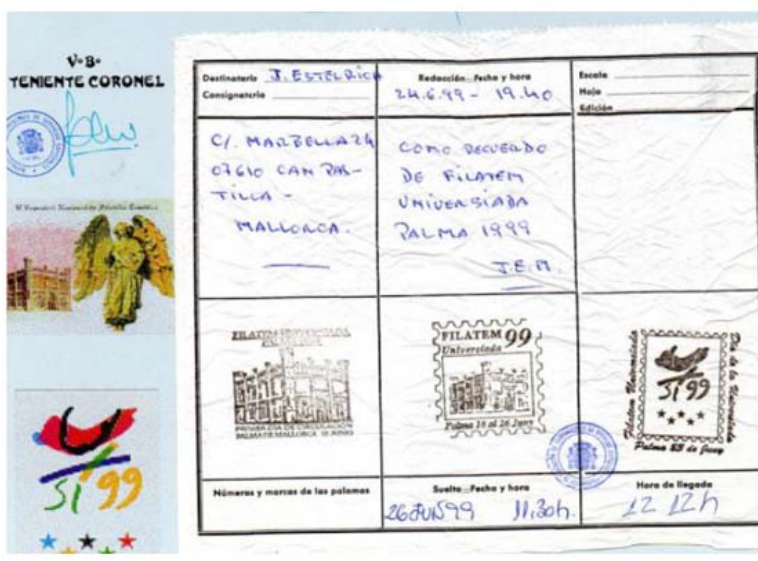 Vº Bº
TENIENTE CORONEL
Destinatario J. ESTELRICH
Consignatario
Redacción Fecha y hora
24.6.99 - 19.40
Escala
Hoja
Edición
C/. MARBELLA 24
07610 CAN PAS-
TILLA -
MALLORCA.
COMO RECUERDO
DE FILATEM
UNIVERSIADA
PALMA 1999
J.E.M.
FILATEM UNIVERSIADA
PRIMER DIA DE CIRCULACION
PALMA DE MALLORCA
FILATEM 99
Universiada
Palma 18 al 26 Juny
Filatem Universiada
Dia de la Universiada
SI 99
Palma 25 de Juny
SI 99
Números y marcas de las palomas
Suelta Fecha y hora
26 JUN 99 11,30h.
Hora de llegada
12 12h